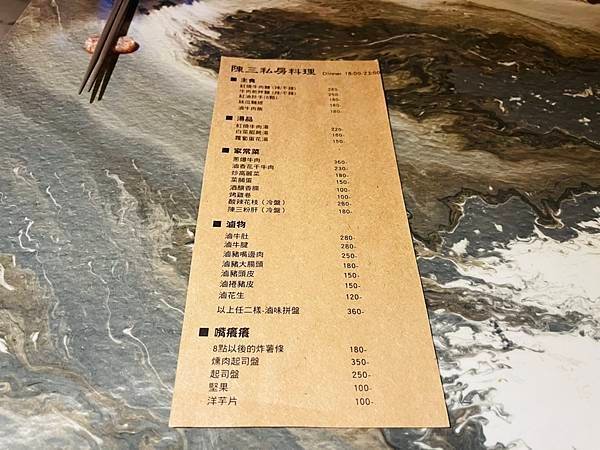 陳三私房料理 Dinner 18:00-23:00
■ 主食
紅燒牛肉麵 (辣/不辣) 280-
牛肉乾拌麵 (辣/不辣) 250-
紅油抄手(8顆) 180-
絲瓜麵線 180-
滷牛肉飯
■ 湯品
紅燒牛肉湯 220-
白菜餛飩湯 180-
蘿蔔蛋花湯 150-
■ 家常菜
蔥爆牛肉 360-
滷香花干牛肉 230-
炒高麗菜 180-
菜脯蛋 150-
酒釀香腸 100-
烤雞卷 100-
酸辣花枝（冷盤） 280-
陳三粉肝（冷盤） 180-
■ 滷物
滷牛肚 280-
滷牛腱 280-
滷豬嘴邊肉 250-
滷豬大腸頭 180-
滷豬頭皮 150-
滷捲豬皮 150-
滷花生 120-
以上任二樣-滷味拼盤 360-
■ 嘴癢癢
8點以後的炸薯條 180-
燻肉起司盤 350-
起司盤 250-
堅果 100-
洋芋片 100-